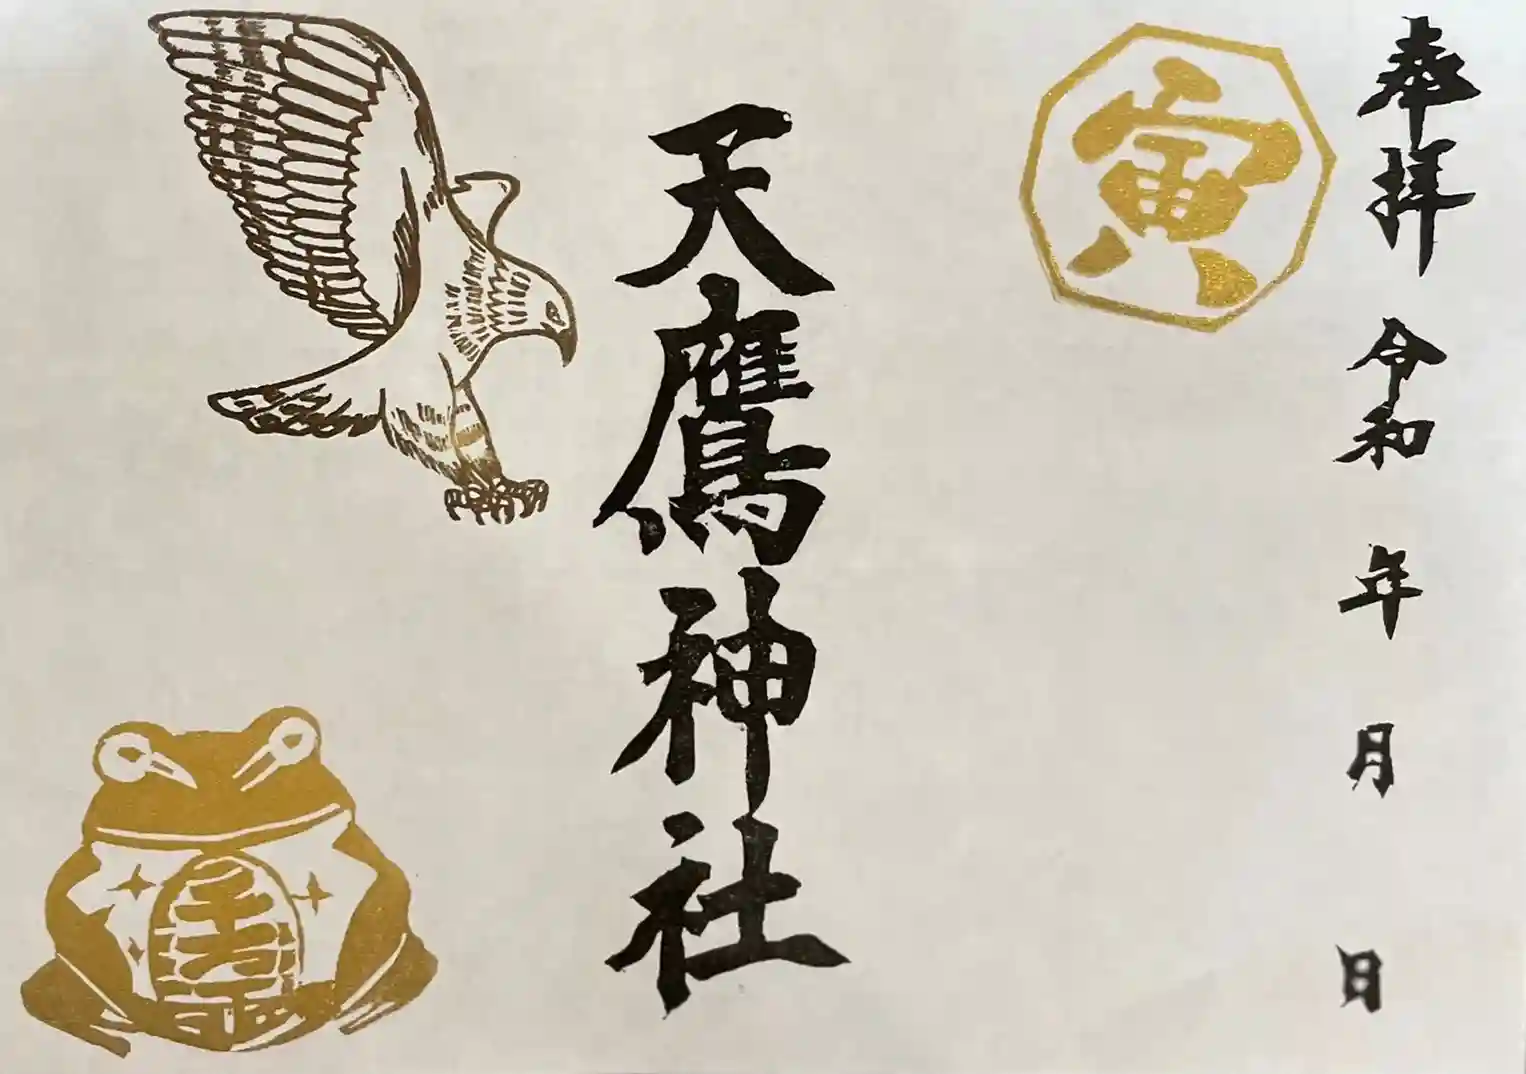 奉拝
令和 年 月 日
寅
天鷹神社